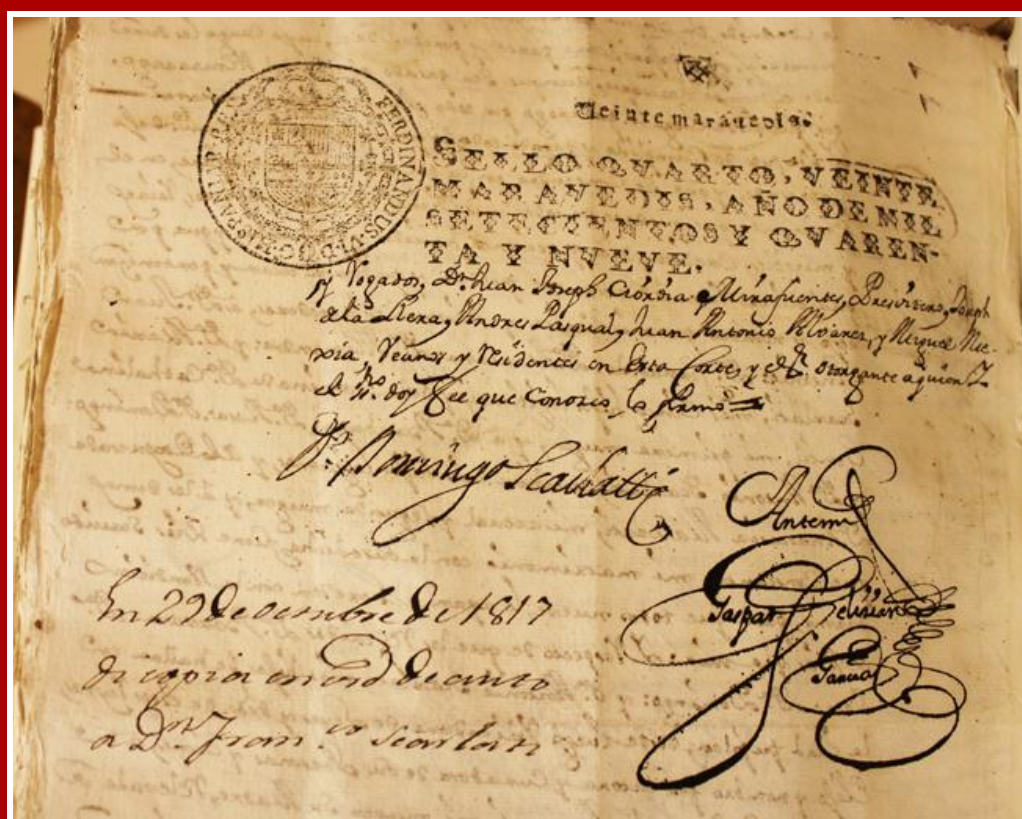 FERDINANDUS·VI·D·G·HISPANIAR·REX
Veinte maravedis.
SELLO QVARTO, VEINTE
MARAVEDIS, AÑO DE MIL
SETECIENTOS Y QVAREN-
TA Y NVEVE.
y Rogados, Dn. Juan Joseph Mirafuentes, Presvitero, Joseph
de la Llera, Andres Pasqual, Juan Antonio Alvarez, y Miguel Me-
xia, Vecinos y residentes en esta Corte, y el otorgante a quien
el doy fee que conozco, lo firmó =
Dn. Domingo Scarlatti
Antemi
Gaspar Feliciano
Garcia
En 29 de octubre de 1817
di copia en de
a Dn. Franco. Scarlati